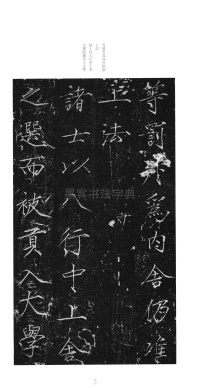 等罰升爲內舍仍准
上法
諸士以八行中上舍
之選而被貢入大學
墨客书法字典